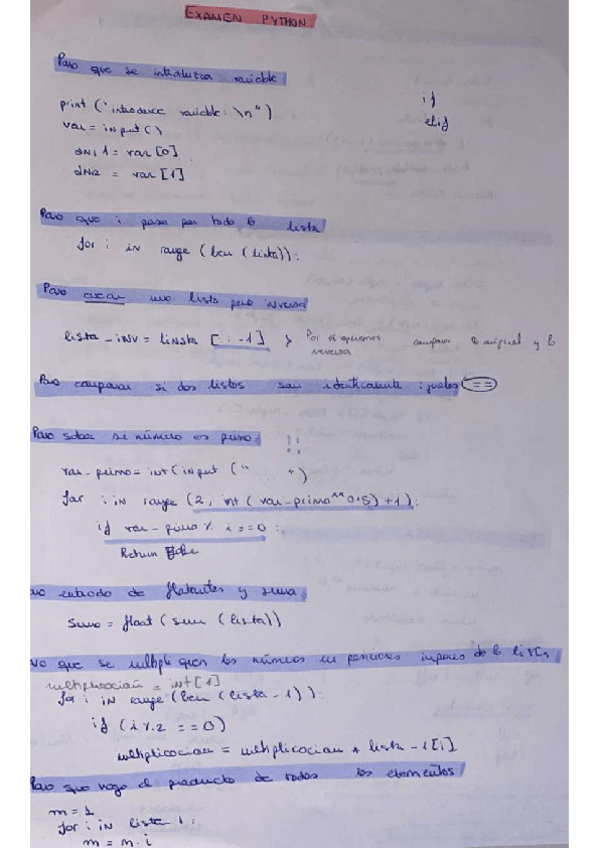 EXAMEN PYTHON
Para que se introduzca variable
print ("introduce variable: \n")
var = input ()
if
elif
dni 1 = var [0]
dni2 = var [1]
Para que i pase por toda la lista
for i in range (len (lista)):
Para crear una lista pero inversa
lista_inv = linsta [: -1] } Por si queremos comparar la original y la
reversa
Para comparar si dos listas son identicamente iguales (==)
Para saber si número es primo !!
var_primo = int (input (" ... ")
for i in range (2, int (var_primo**0.5) + 1):
if var_primo % i == 0 :
Return False
entrada de flotantes y suma
suma = float (sum (lista))
que se multipliquen los números en posiciones impares de la lista
multiplicacion = int [1]
for i in range (len (lista - 1)):
if (i % 2 == 0)
multiplicacion = multiplicacion * lista - 1 [i]
Para que haga el producto de todos los elementos
m = 1
for i in lista 1 :
m = m . i